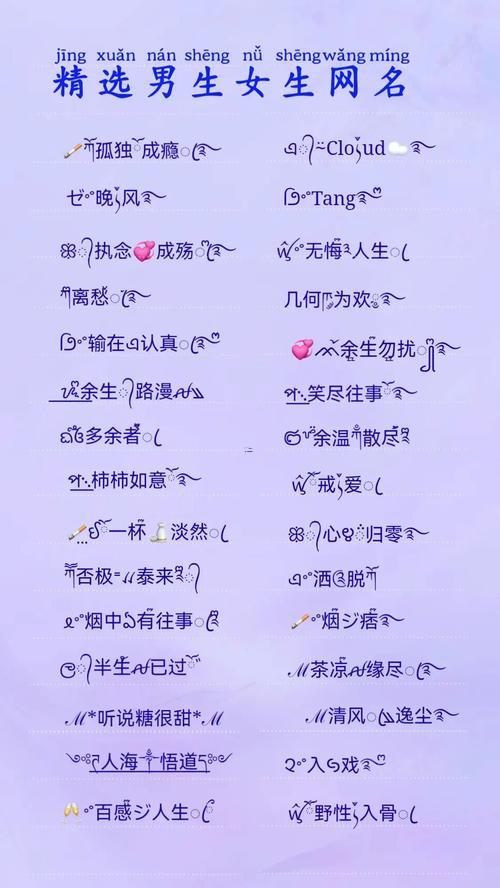 jīng xuǎn nán shēng nǚ shēng wǎng míng
精选男生女生网名
🚬ཏོ孤独ོ成瘾ꦿ໊ོ࿐
ベ°晚ꦿ风࿐
ꕥ᭄执念💞成殇ꦿ໊ོ࿐
ཏོ离愁ꦿ໊࿐
෴°输在এ认真ꦿོ࿐
余生᭄路漫ꦿ
多余者ꦿ
柿柿如意ོ࿐
🚬一杯🍶淡然ꦿ
ཏོ否极泰来ཏ᭄ོ
ℯ°烟中有往事ꦿོ
半生已过ོ
ℳ*听说糖很甜*ℳ
人海༒悟道
🥂°百感ジ人生ꦿ
এ᭄Cloꦿud☁️ꦿ໊ོ࿐
෴°Tangꦿ໊࿐
ꦿ°无悔ꦿ人生ꦿ
几何ꦿ为欢ꦿ࿐
💞余生勿扰ꦿ࿐
笑尽往事ོ࿐
余温ཏོ散尽ཏོ
ꦿ戒ꦿ爱ꦿ
ꕥ᭄心ঞ归零࿐
এ°洒脱ཏོ
🚬°烟ジ痞࿐
ℳ茶凉缘尽ꦿ໊ོ࿐
ℳ清风ꦿ逸尘࿐
২°入戏ོ࿐
ꦿ°野性ꦿ入骨ꦿ